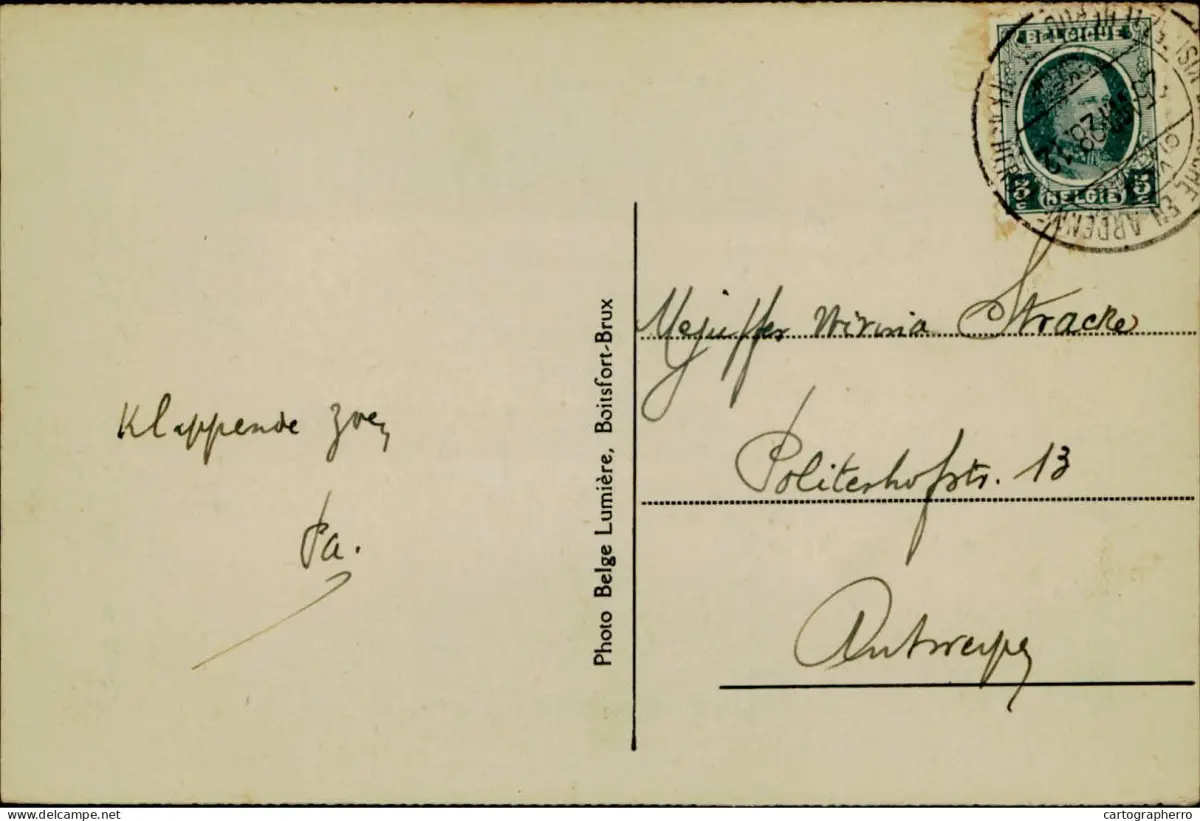 Klappende zoen
Pa.
Photo Belge Lumière, Boitsfort-Brux
BELGIQUE
5 c BELGIË 5 c
EN ARDENNE
Mejuffer Wivina Stracke
Politerhofstr. 13
Antwerpen
delcampe.net
cartographerro